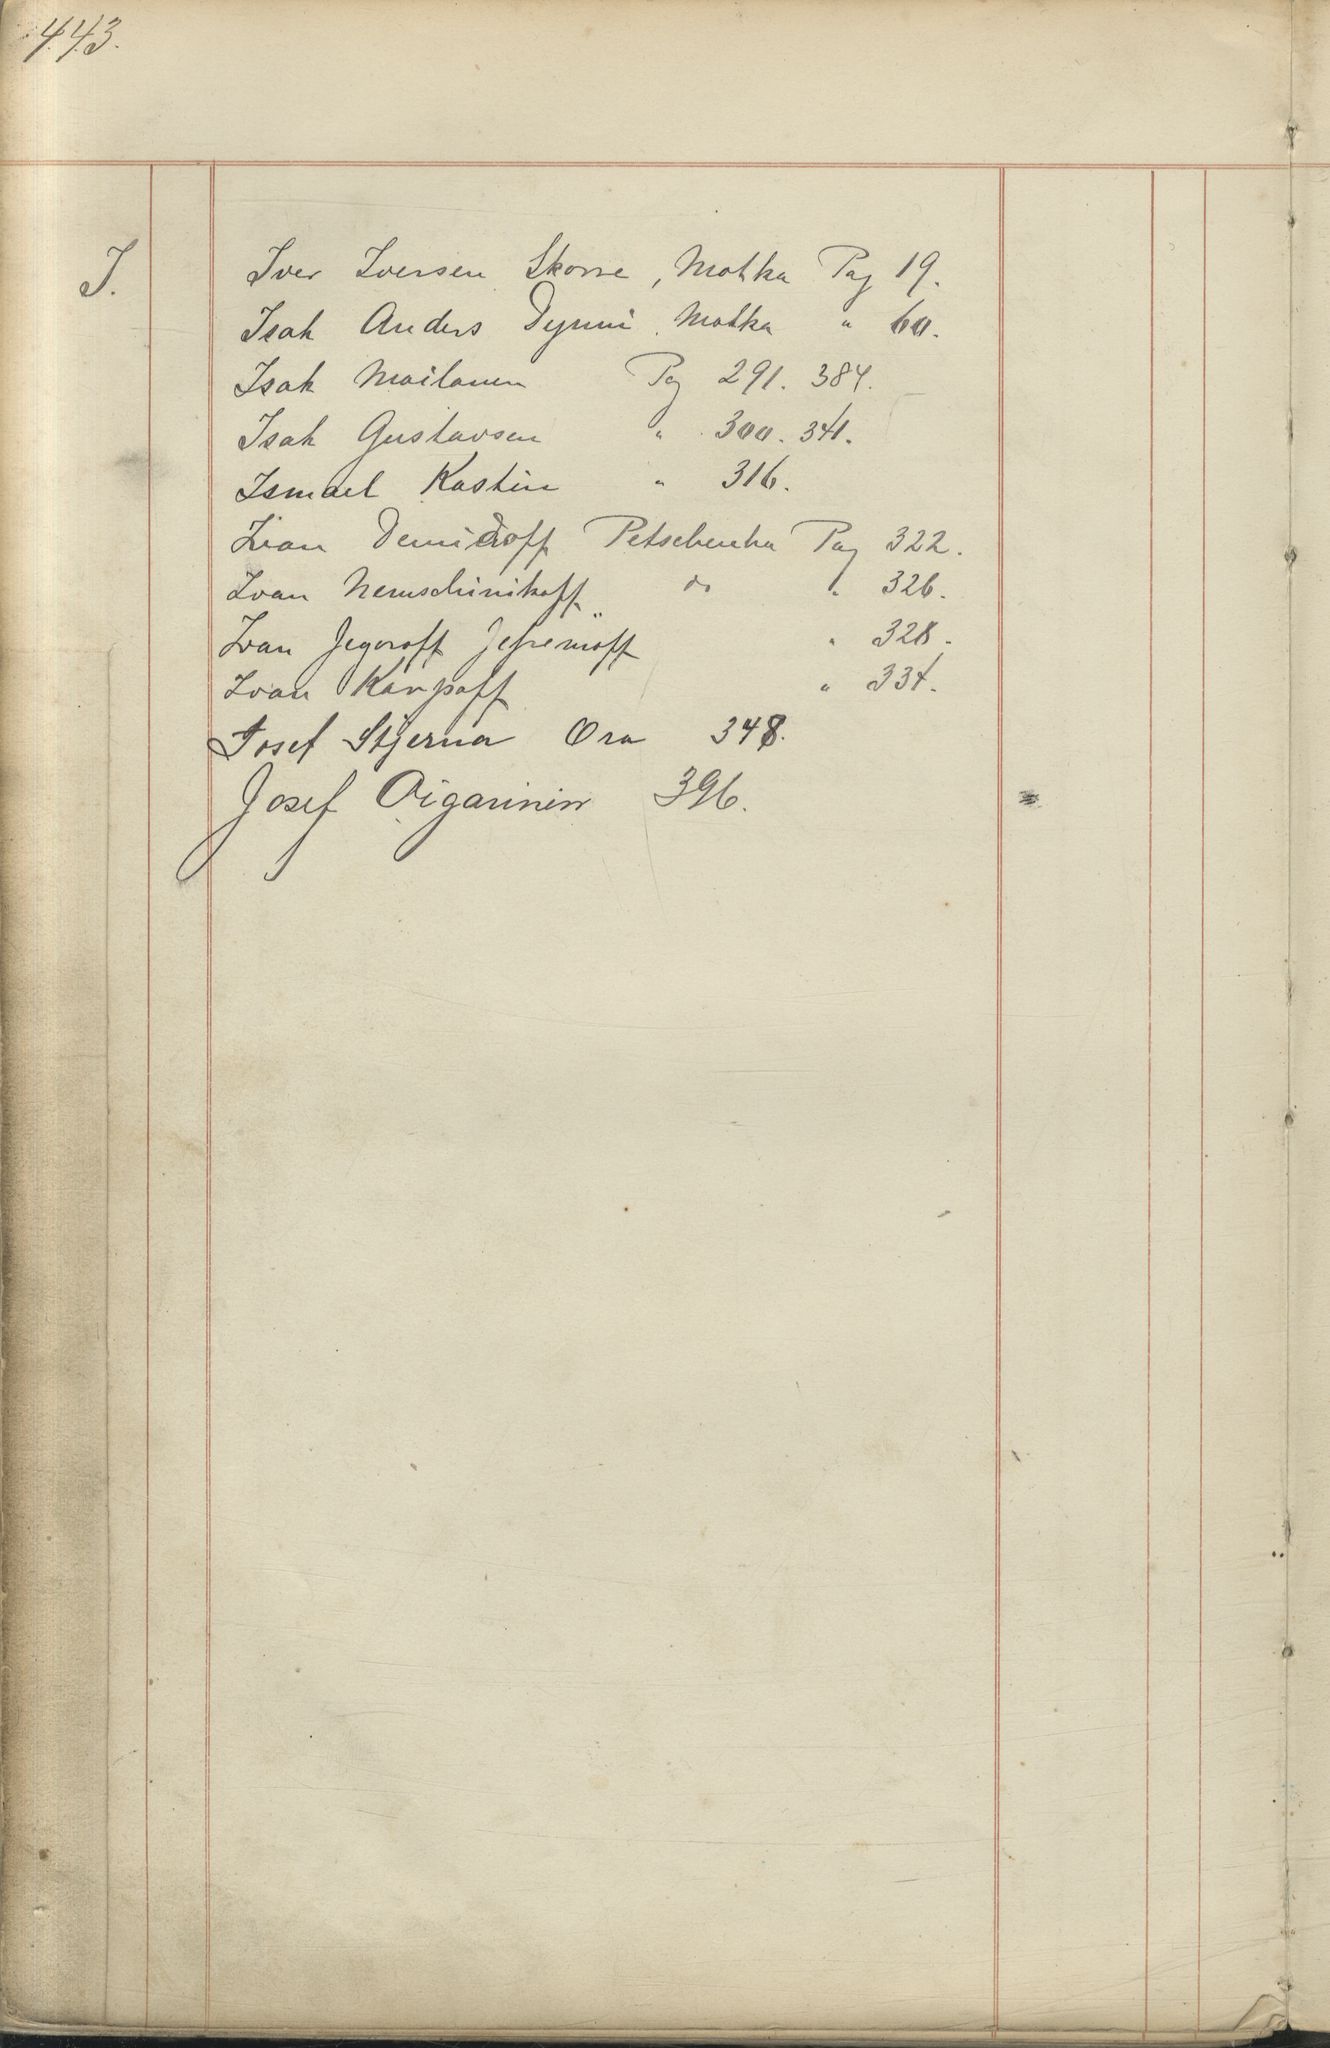 443.
I.
Iver Iversen Skorre, Motka Pag 19.
Isak Anders Dynni. Motka " 60.
Isak Mailanen Pag 291. 384.
Isak Gustavsen " 300. 341.
Ismael Kastin " 316.
Ivan Demidoff Petschenka Pag 322.
Ivan Nemschinikoff do " 326.
Ivan Jegoroff Jefremoff " 328.
Ivan Karpoff " 334.
Josef Stjerna Ora 348.
Josef Oigarinen 396.